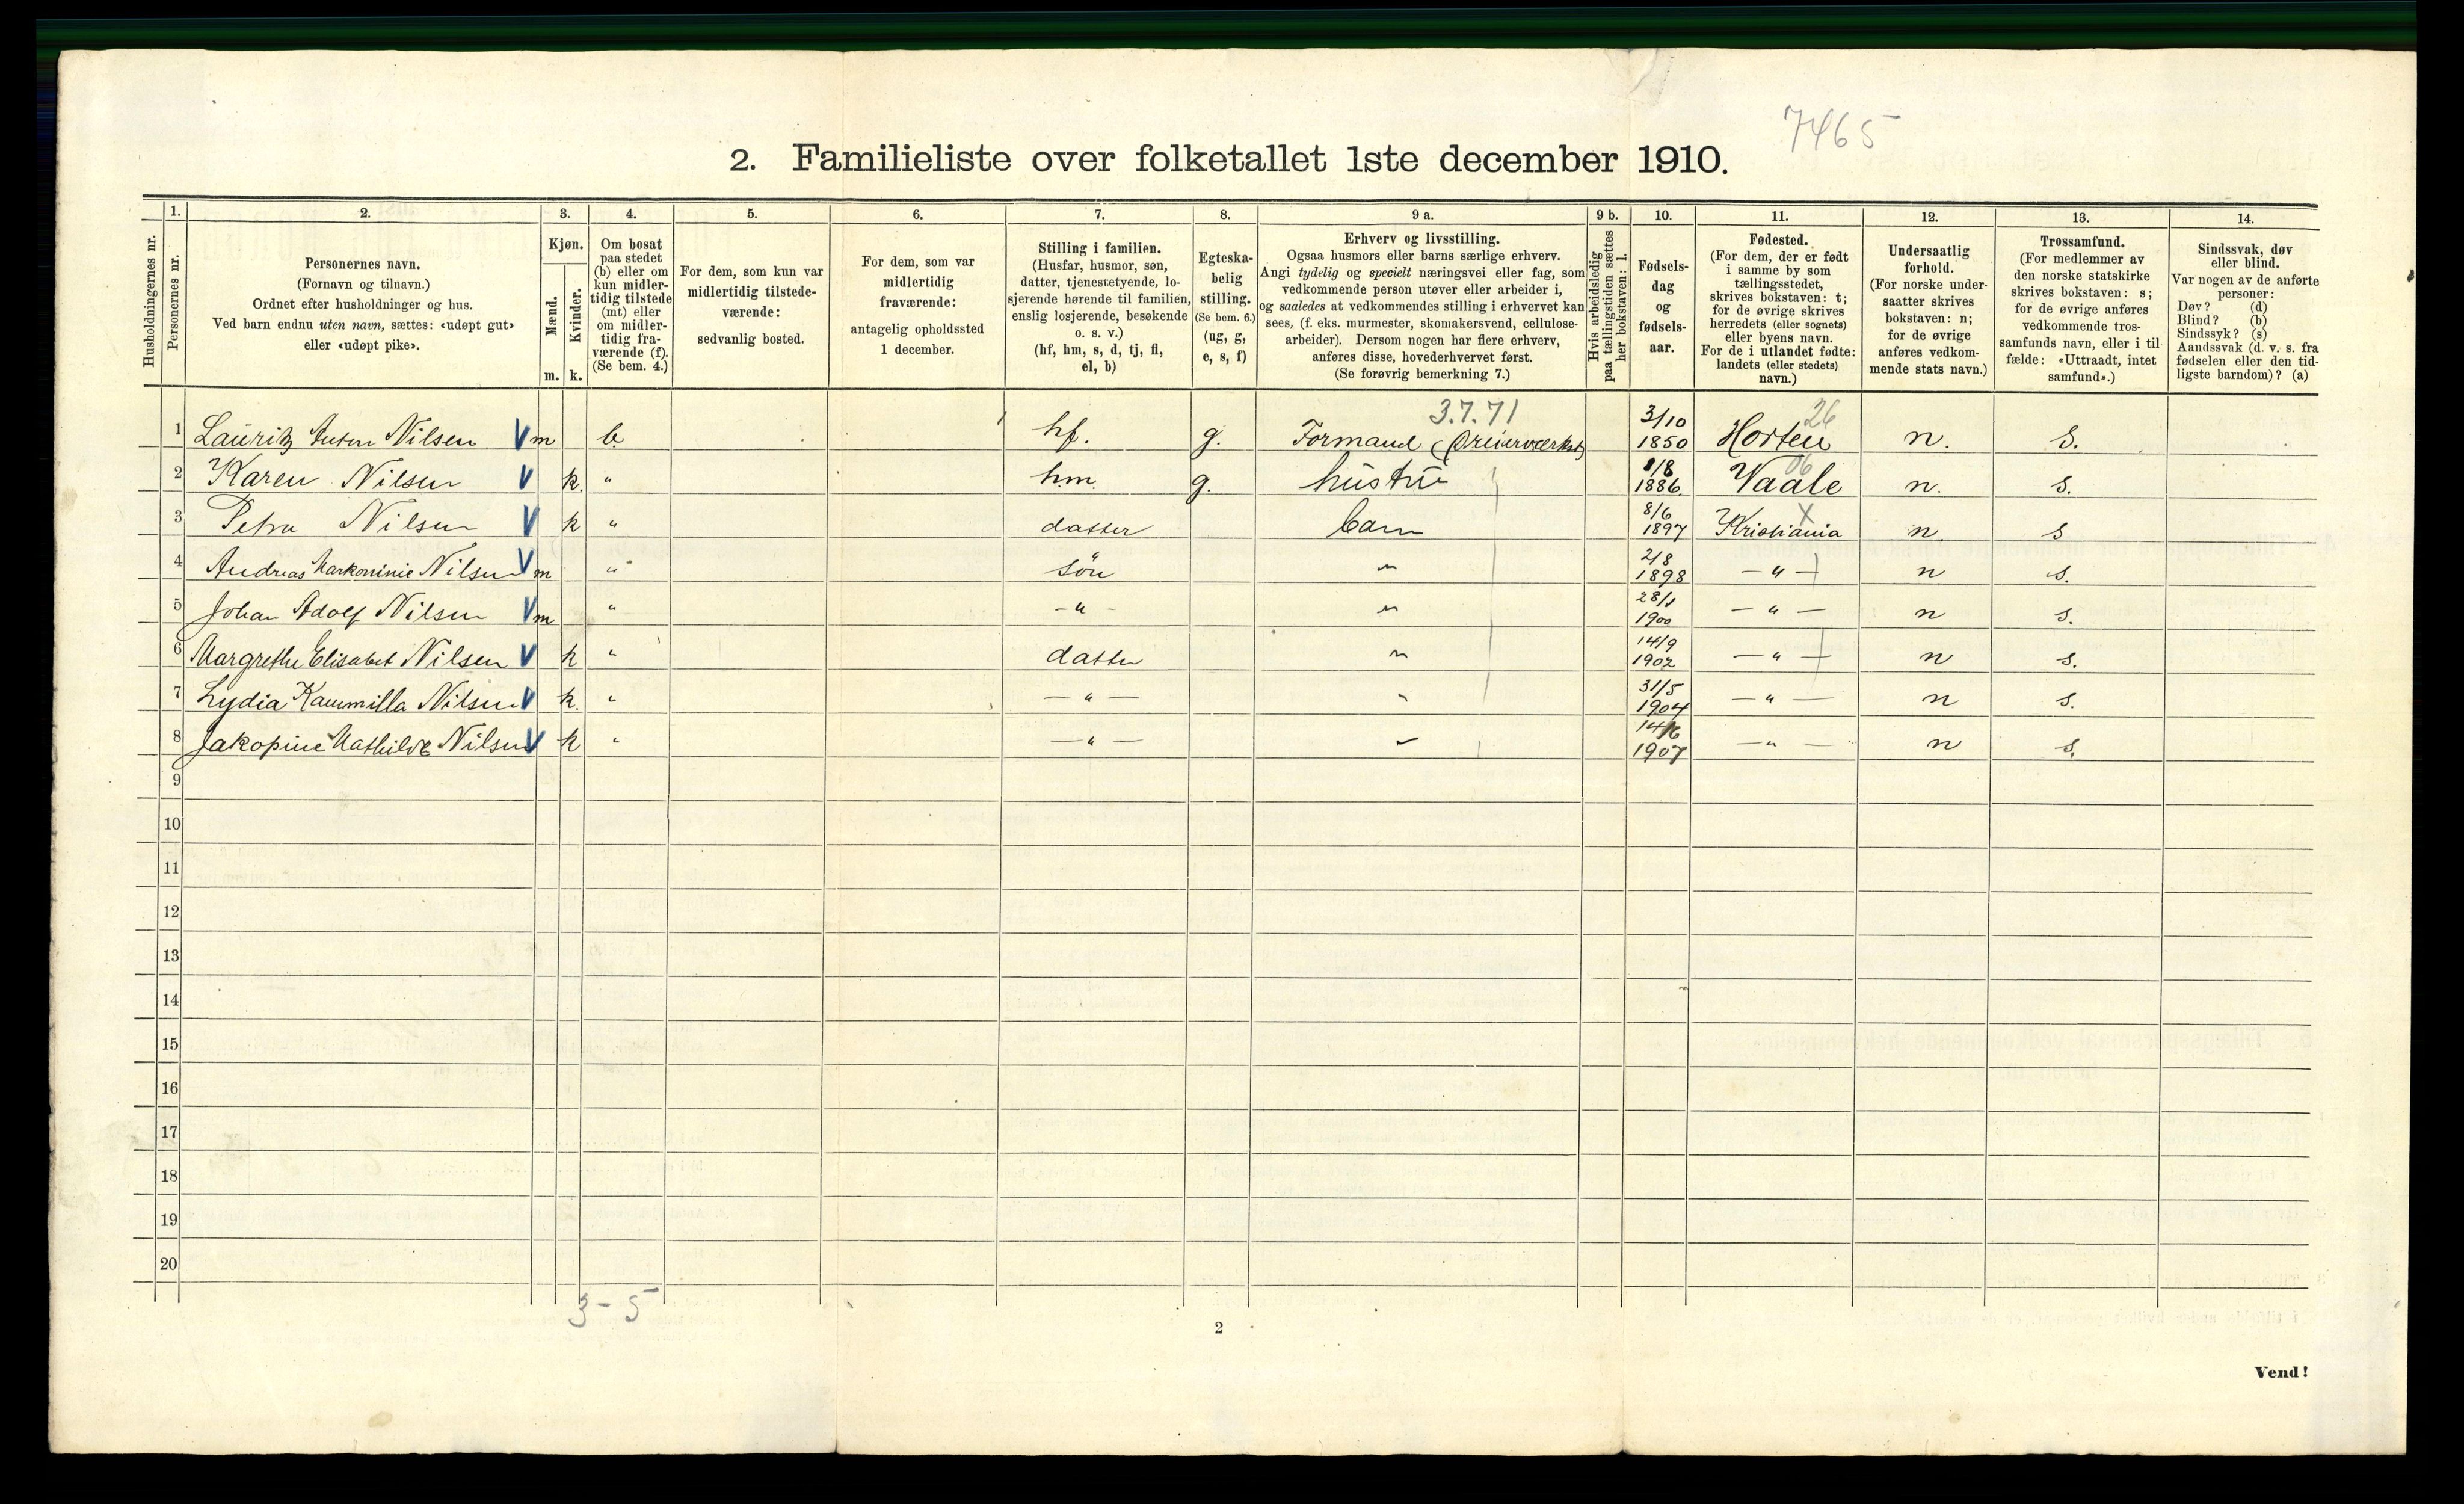 7465
2. Familieliste over folketallet 1ste december 1910.
1. 2. 3. 4. 5. 6. 7. 8. 9 a. 9 b. 10. 11. 12. 13. 14.
Husholdningernes nr.
Personernes nr.
Personernes navn.
(Fornavn og tilnavn.)
Ordnet efter husholdninger og hus.
Ved barn endnu uten navn, sættes: «udøpt gut»
eller «udøpt pike».
Kjøn.
Mænd.
Kvinder.
m. k.
Om bosat
paa stedet
(b) eller om
kun midler-
tidig tilstede
(mt) eller
om midler-
tidig fra-
værende (f).
(Se bem. 4.)
For dem, som kun var
midlertidig tilstede-
værende:
sedvanlig bosted.
For dem, som var
midlertidig
fraværende:
antagelig opholdssted
1 december.
Stilling i familien.
(Husfar, husmor, søn,
datter, tjenestetyende, lo-
sjerende hørende til familien,
enslig losjerende, besøkende
o. s. v.)
(hf, hm, s, d, tj, fl,
el, b)
Egteska-
belig
stilling.
(Se bem. 6.)
(ug, g,
e, s, f)
Erhverv og livsstilling.
Ogsaa husmors eller barns særlige erhverv.
Angi tydelig og specielt næringsvei eller fag, som
vedkommende person utøver eller arbeider i,
og saaledes at vedkommendes stilling i erhvervet kan
sees, (f. eks. murmester, skomakersvend, cellulose-
arbeider). Dersom nogen har flere erhverv,
anføres disse, hovederhvervet først.
(Se forøvrig bemerkning 7.)
Hvis arbeidsledig
paa tællingstiden sættes
her bokstaven: l.
Fødsels-
dag
og
fødsels-
aar.
Fødested.
(For dem, der er født
i samme by som
tællingsstedet,
skrives bokstaven: t;
for de øvrige skrives
herredets (eller sognets)
eller byens navn.
For de i utlandet fødte:
landets (eller stedets)
navn.)
Undersaatlig
forhold.
(For norske under-
saatter skrives
bokstaven: n;
for de øvrige
anføres vedkom-
mende stats navn.)
Trossamfund.
(For medlemmer av
den norske statskirke
skrives bokstaven: s;
for de øvrige anføres
vedkommende tros-
samfunds navn, eller i til-
fælde: «Uttraadt, intet
samfund».)
Sindssvak, døv
eller blind.
Var nogen av de anførte
personer:
Døv? (d)
Blind? (b)
Sindssyk? (s)
Aandssvak (d. v. s. fra
fødselen eller den tid-
ligste barndom)? (a)
3.7.71 26
1 Lauritz Anton Nilsen V m b. hf. g. Formand (Dreierværkst) 3/10 1850 Horten n. s.
06
2 Karen Nilsen V k. " hm. g. hustru 8/8 1886 Vaale n. s.
X
3 Petra Nilsen V k " datter barn 8/6 1897 Kristiania n s
4 Andreas Nilsen V m " søn " 2/8 1898 — " — n s.
5 Johan Adolf Nilsen V m " - " - " 28/1 1900 — " — n s.
6 Margrethe Elisabet Nilsen V k " datter " 14/9 1902 — " — n s.
7 Lydia Kammilla Nilsen V k. " — " — " 31/5 1904 — " — n s.
8 Jakopine Mathilde Nilsen V k " — " — " 14/6 1907 — " — n s.
9
10
11
12
13
14
15
16
17
18
19
20
3 - 5
2
Vend!